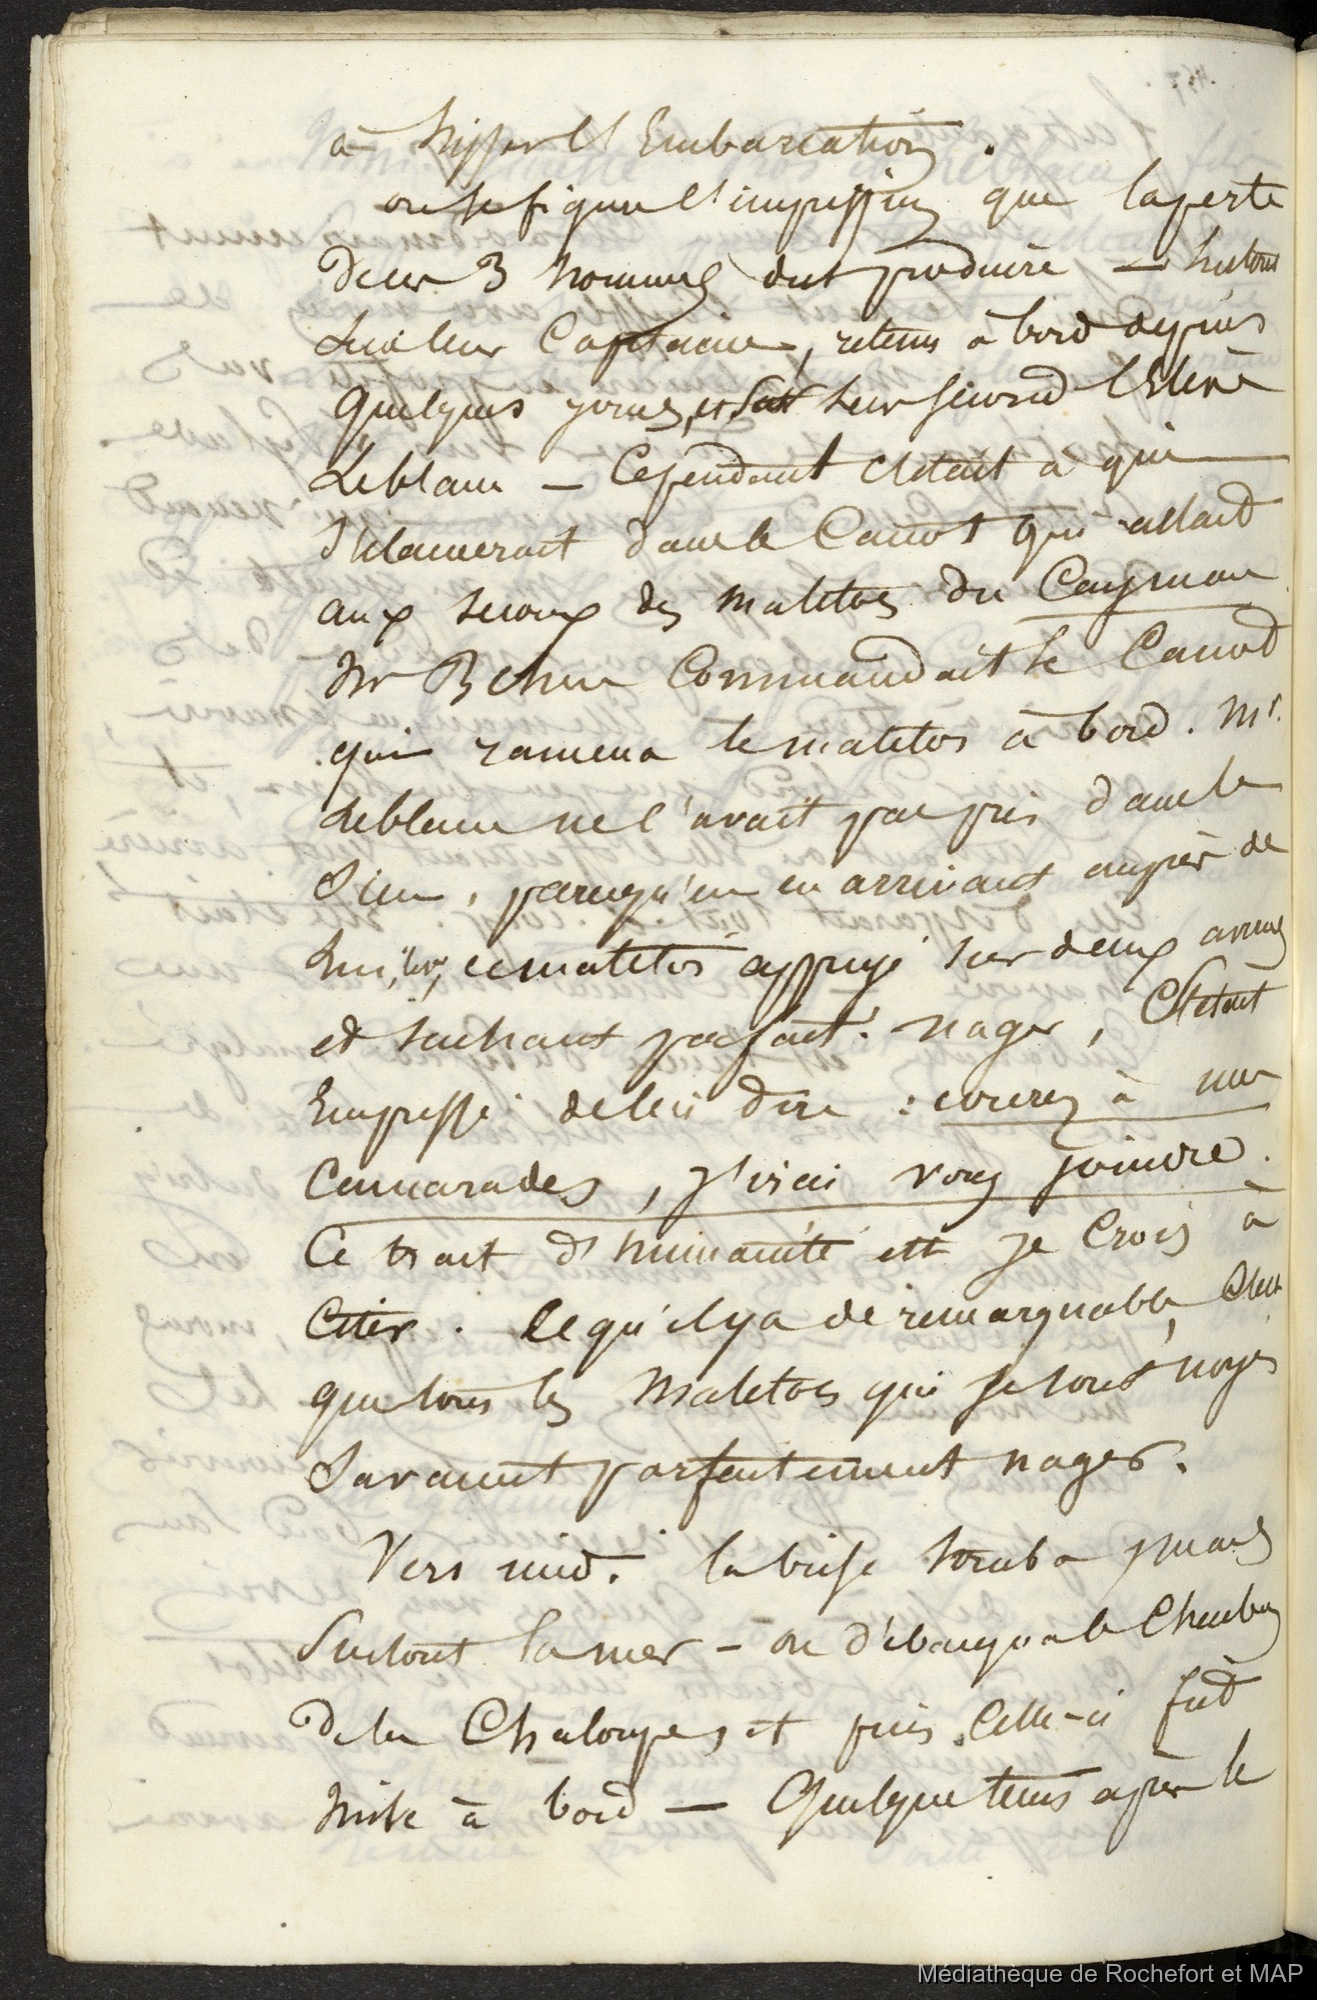 à hisser l'Embarcation.
on se figure l'impression que la perte
de ces 3 hommes dut produire — surtout
sur leur Capitaine, retenu à bord depuis
quelques jours, et sur leur second l'Elève
Leblanc — Cependant c'était à qui
s'élancerait dans le Canot qui allait
aux secours des matelots du Cayman
Mr Behue Commandait le Canot
qui ramena le matelot à bord. Mr.
Leblanc ne l'avait pas pris dans le
sien, parcequ'en en arrivant auprès de
lui, ce matelot appuyé sur deux avirons
et sachant parfait. nager, s'était
Empressé de lui dire : courez à mes
Camarades, j'irai vous joindre.
Ce trait d'humanité est je crois à
Citer. Ce qu'il y a de remarquable, C'est
que tous les Matelots qui se sont noyés
Savaient parfaitement nager.
Vers midi. la brise tomba, mais
surtout la mer — on débarqua le Charbon
de la Chaloupe, et puis Celle-ci fut
mise à bord — Quelque tems après le
Médiathèque de Rochefort et MAP